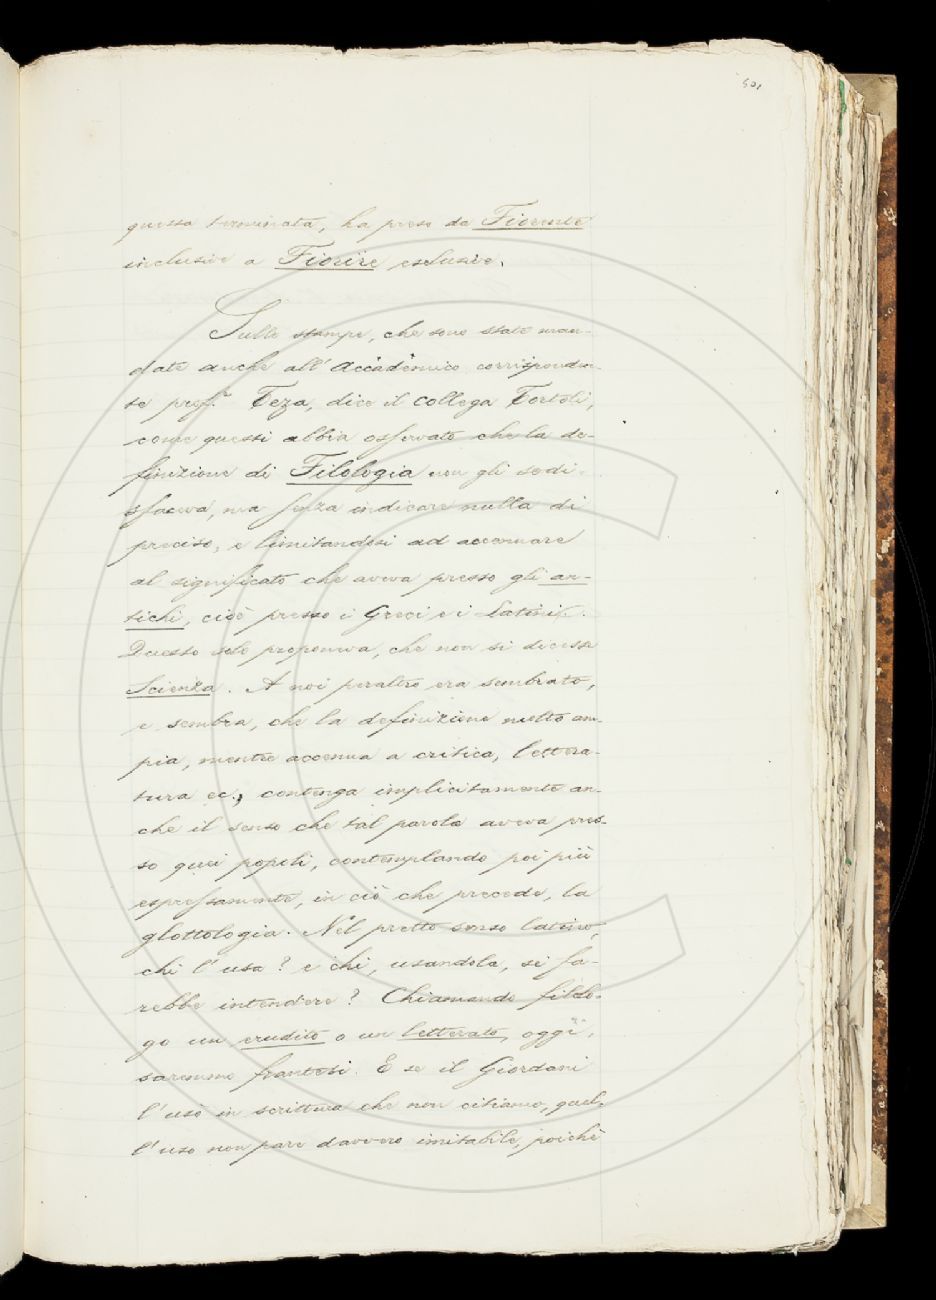 501
questa terminata, ha preso da Fiorente
inclusive a Fiorire esclusive.
Sulle stampe, che sono state man-
date anche all'Accademico corrisponden-
te prof.r Teza, dice il collega Tortoli,
come questi abbia osservato che la de-
finizione di Filologia non gli sodi-
sfaceva, ma senza indicare nulla di
preciso, e limitandosi ad accennare
al significato che aveva presso gli an-
tichi, cioè presso i Greci e i Latini.
Questo solo proponeva, che non si dicesse
Scienza. A noi peraltro era sembrato,
e sembra, che la definizione molto am-
pia, mentre accenna a critica, lettera-
tura ec., contenga implicitamente an-
che il senso che tal parola aveva pres-
so quei popoli, contemplando poi più
espressamente, in ciò che precede, la
glottologia. Nel pretto senso latino,
chi l'usa? e chi, usandola, si fa-
rebbe intendere? Chiamando filolo-
go un erudito o un letterato, oggi,
saremmo frantesi. E se il Giordani
l'usò in scrittura che non citiamo, quel-
l'uso non pare davvero imitabile, poichè